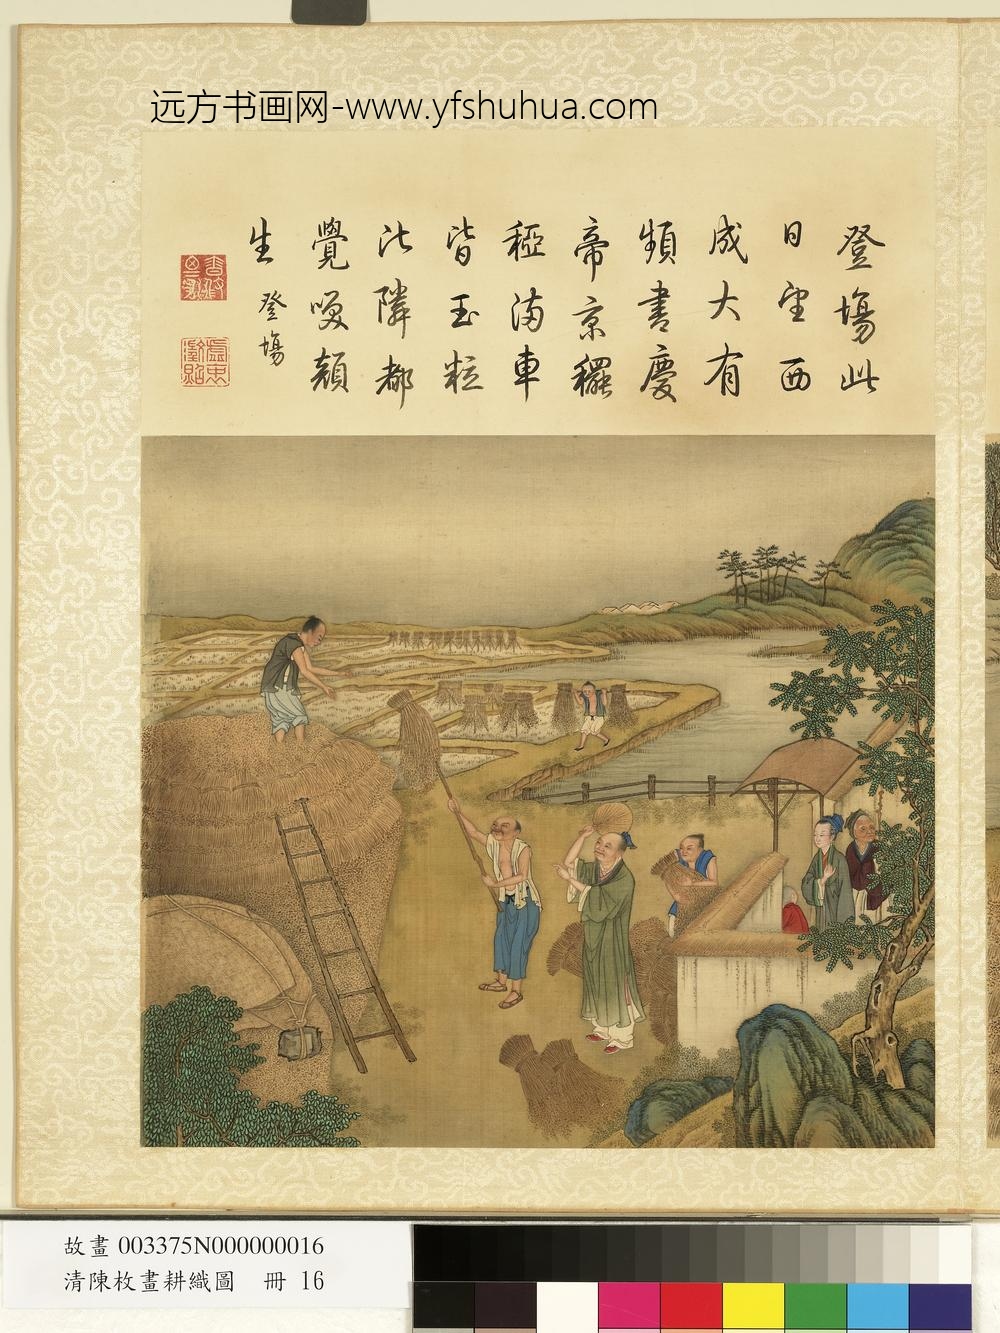 远方书画网-www.yfshuhua.com
登場此
日望西
成大有
頻書慶
帝京穲
稏满車
皆玉粒
比隣都
覺喚顏
生 登場
故畫 003375N000000016
清陳枚畫耕織圖 冊 16